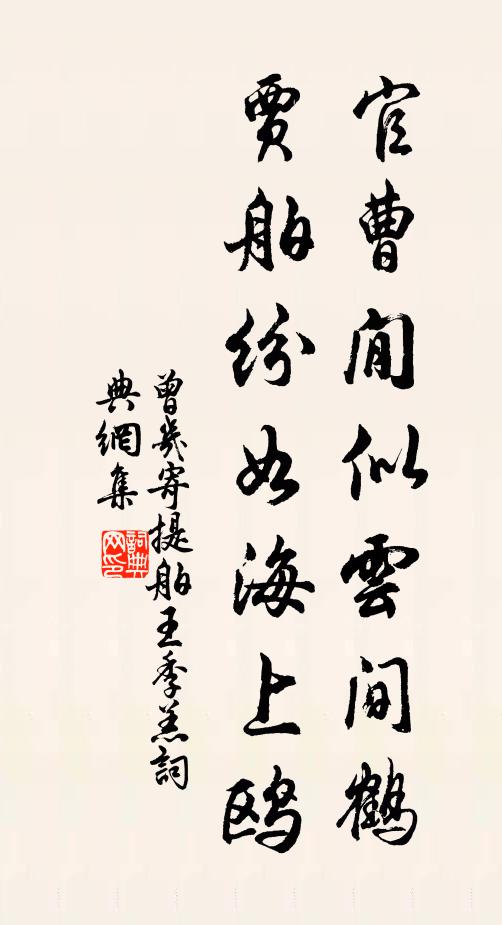 官曹閒似雲間鶴
賈舶紛如海上鷗
曾幾寄提舶王季羔詞
典網集
詞典網印